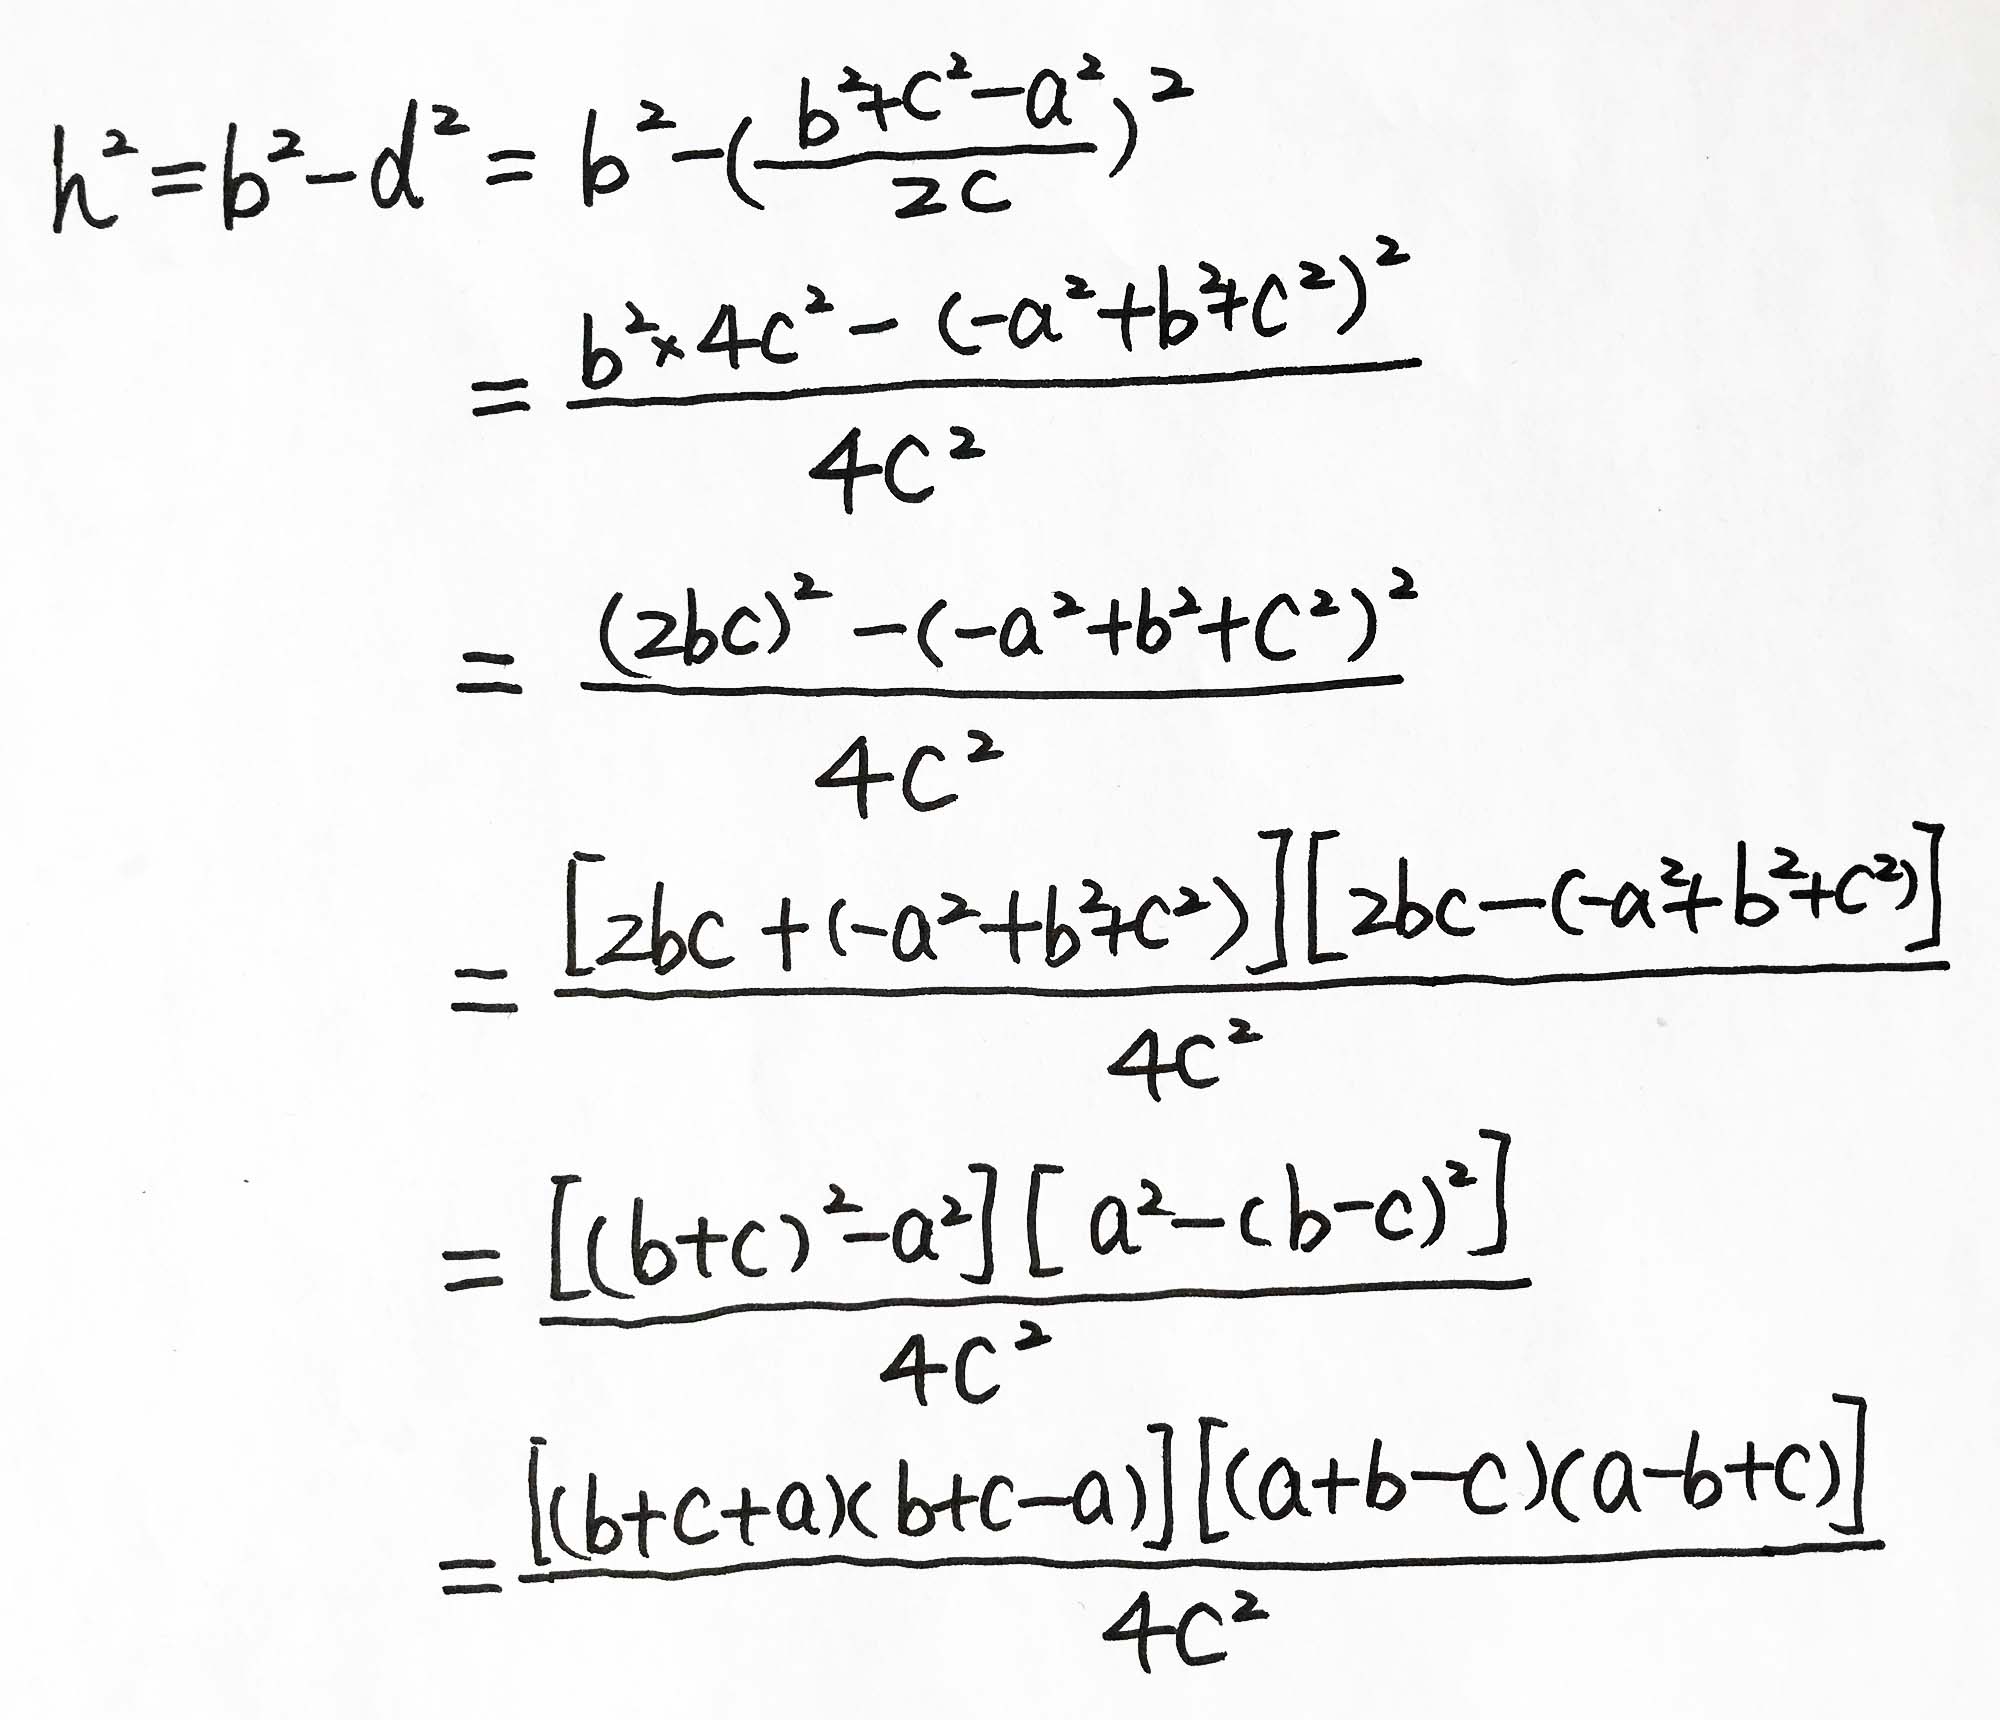 h² = b² - d² = b² - ((b² + c² - a²) / 2c)²
= (b² × 4c² - (-a² + b² + c²)²) / 4c²
= ((2bc)² - (-a² + b² + c²)²) / 4c²
= [2bc + (-a² + b² + c²)][2bc - (-a² + b² + c²)] / 4c²
= [(b+c)² - a²][a² - (b-c)²] / 4c²
= [(b+c+a)(b+c-a)][(a+b-c)(a-b+c)] / 4c²